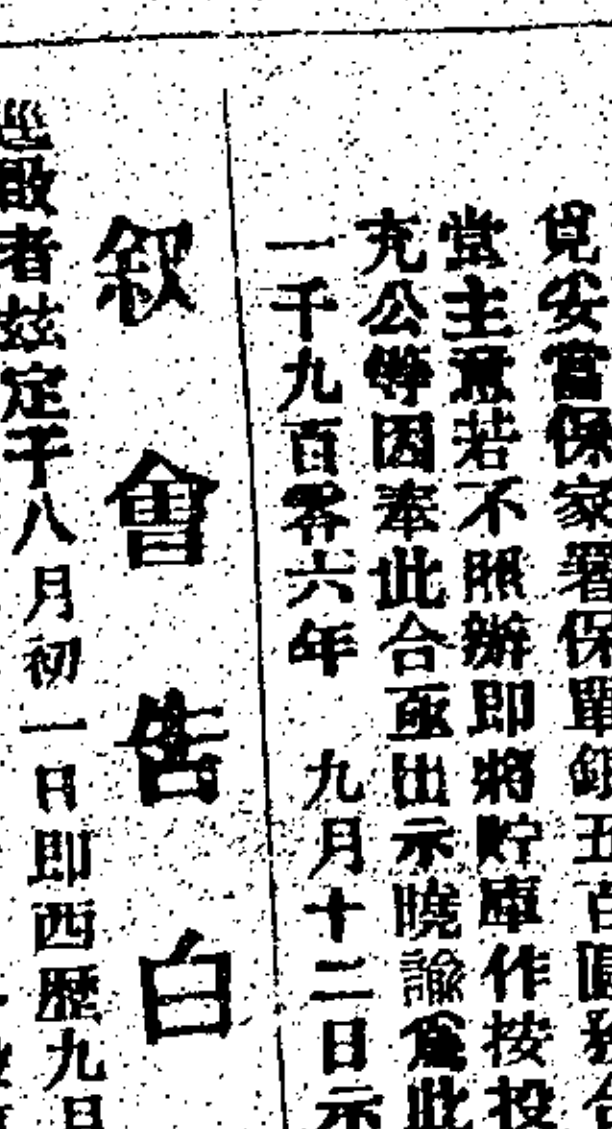 覓妥當保家署保單銀五百
堂主意若不照辦即將貯庫作按投
充公等因奉此合亟出示曉諭爲此
一千九百零六年 九月十二日示
敘會告白
逕啟者茲定于八月初一日即西歷九月